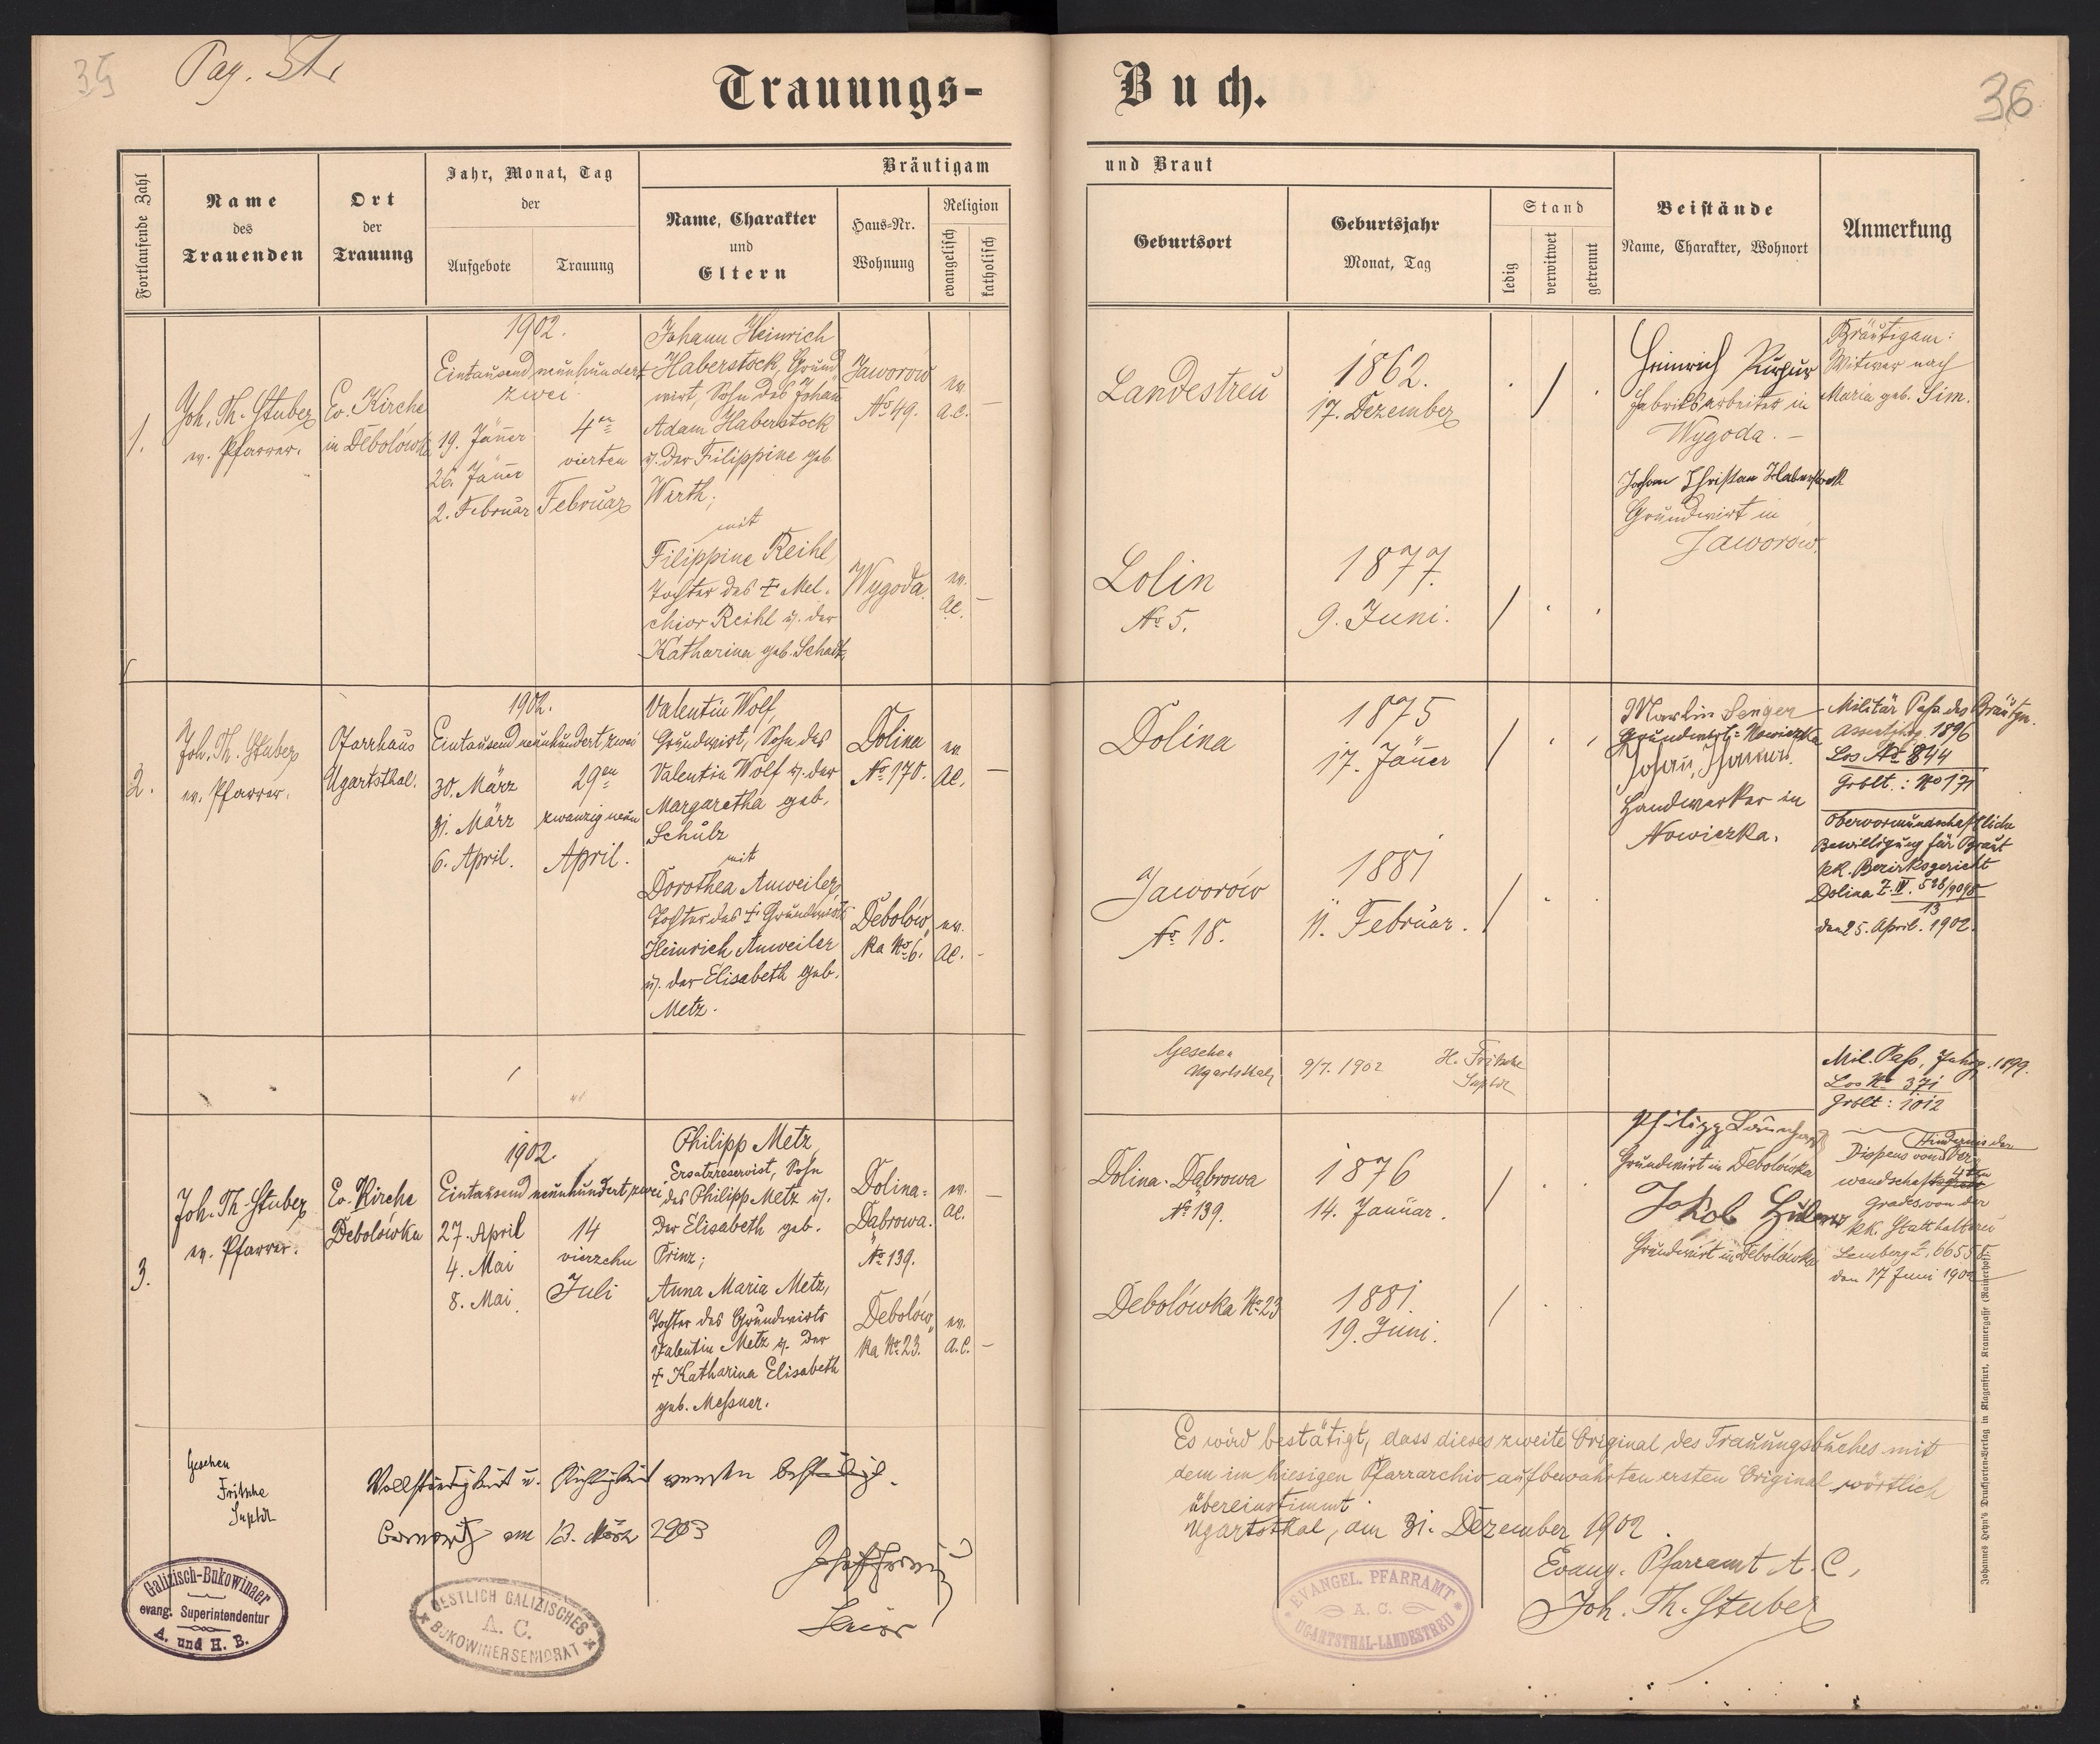 35
36
Trauungs-Buch.
Fortlaufende Zahl
Name
des
Trauenden
Ort
der
Trauung
Jahr, Monat, Tag
der
Aufgebote
Trauung
Bräutigam und Braut
Name, Charakter
und
Eltern
Haus-Nr.
Wohnung
Religion
evangelisch
katholisch
Geburtsort
Geburtsjahr
Monat, Tag
Stand
ledig
verwitwet
getrennt
Beistände
Name, Charakter, Wohnort
Anmerkung
1.
Joh. Th. Stuber
ev. Pfarrer.
Ev. Kirche
in Debolówka
1902.
Eintausend neunhundert
zwei
19. Jänner
26. Jänner
2. Februar
4en
vierten
Februar
Johann Heinrich
Haberstock, Grund
wirt, Sohn des Johan
Adam Haberstock
u. der Filippine geb.
Werth;
mit
Filippine Reihl,
Tochter des † Mel-
chior Reihl u. der
Katharina geb.
Jaworów
No 49.
ev.
A.C.
—
Wygoda.
ev.
AC.
—
Landestreu
1862.
17. Dezember
Lolin
No 5.
1877.
9. Juni.
Heinrich
Fabriksarbeiter in
Wygoda. –
Johann Christian Haberstock
Grundwirt in
Jaworów.
Bräutigam:
Witwer nach
Maria geb. Sim.
2.
Joh. Th. Stuber
ev. Pfarrer.
Pfarrhaus
Ugartsthal.
1902.
Eintausend neunhundert zwei
30. März
31. März
6. April.
29en
zwanzig neun
April.
Valentin Wolf,
Grundwirt, Sohn des
Valentin Wolf u. der
Margaretha geb.
Schulz
mit
Dorothea Anweiler,
Tochter des † Grundwirts
Heinrich Anweiler
u. der Elisabeth geb.
Metz.
Dolina
No 170.
ev.
AC.
—
Debolów„
ka No 6.
ev.
AC.
-
Dolina
1875
17. Jänner
Jaworów
No 18.
1881
11. Februar.
Martin Senger
Grundwirt: Nowiczka
Johan
Handwerker in
Nowiczka.
Militär Paß des Bräutgm.
Assentjhrg. 1896
Los No 844
Grblt.: No 171
Obervormundschaftliche
Bewilligung für Braut
kk. Bezirksgericht
Dolina Z. IV.
13
den 25. April. 1902.
Gesehen
Ugartsthal,
9/7. 1902
H. Fritsche
Suptdt
Mil. Paß, Jahrg. 1899.
Los No 371
Grblt: 1012
3.
Joh. Th. Stuber
ev. Pfarrer.
Ev. Kirche
Debolówka
1902.
Eintausend neunhundert zwei
27. April
4. Mai
8. Mai
14
vierzehn
Juli
Philipp Metz,
Ersatzreservist, Sohn
des Philipp Metz u.
der Elisabeth geb.
Prinz;
Anna Maria Metz,
Tochter des Grundwirts
Valentin Metz u. der
† Katharina Elisabeth
geb. Meßner.
Dolina-
Dąbrowa.
No 139.
ev.
AC.
—
Debolów„
ka No 23.
ev.
A.C.
—
Dolina-Dąbrowa
No 139.
1876
14. Januar.
Debolówka No 23
1881.
19. Juni.
Philipp
Grundwirt in Debolówka
Jakob
Grundwirt in Debolówka
Hindernis der
Dispens von Ver„
wandschaft 4ten
Grades von der
kk. Statthalterei
Lemberg Z.
den 17 Juni 1902
Gesehen
Fritsche
Suptdt
Vollständigkeit u. Richtigkeit werden bestätigt.
am 13. März 1903
Senior
Galizisch-Bukowinaer
evang. Superintendentur
A. und H. B.
OESTLICH GALIZISCHES
A. C.
BUKOWINERSENIORAT
Es wird bestätigt, dass dieses zweite Original des Trauungsbuches mit
dem im hiesigen Pfarrarchiv aufbewahrten ersten Original wörtlich
übereinstimmt.
Ugartsthal, am 31. Dezember 1902.
Evang. Pfarramt A. C,
Joh. Th. Stuber
EVANGEL. PFARRAMT
A. C.
UGARTSTHAL-LANDESTREU
Johannes Heyn's Drucksorten-Verlag in Klagenfurt, Kramergasse (Rainerhof).